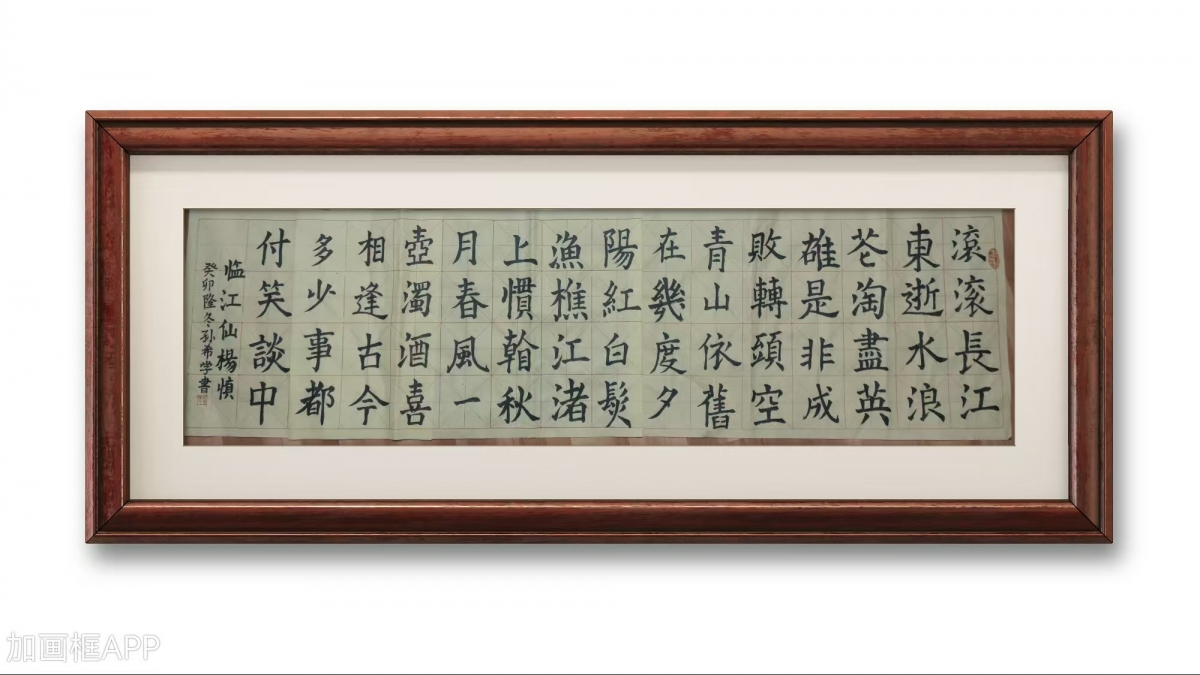 滚滚長江
東逝水浪
花淘盡英
雄是非成
敗轉頭空
青山依舊
在幾度夕
陽紅白髮
漁樵江渚
上慣翰秋
月春風一
壺濁酒喜
相逢古今
多少事都
付笑談中
临江仙楊慎
癸卯隆冬孙希学書
加画框APP